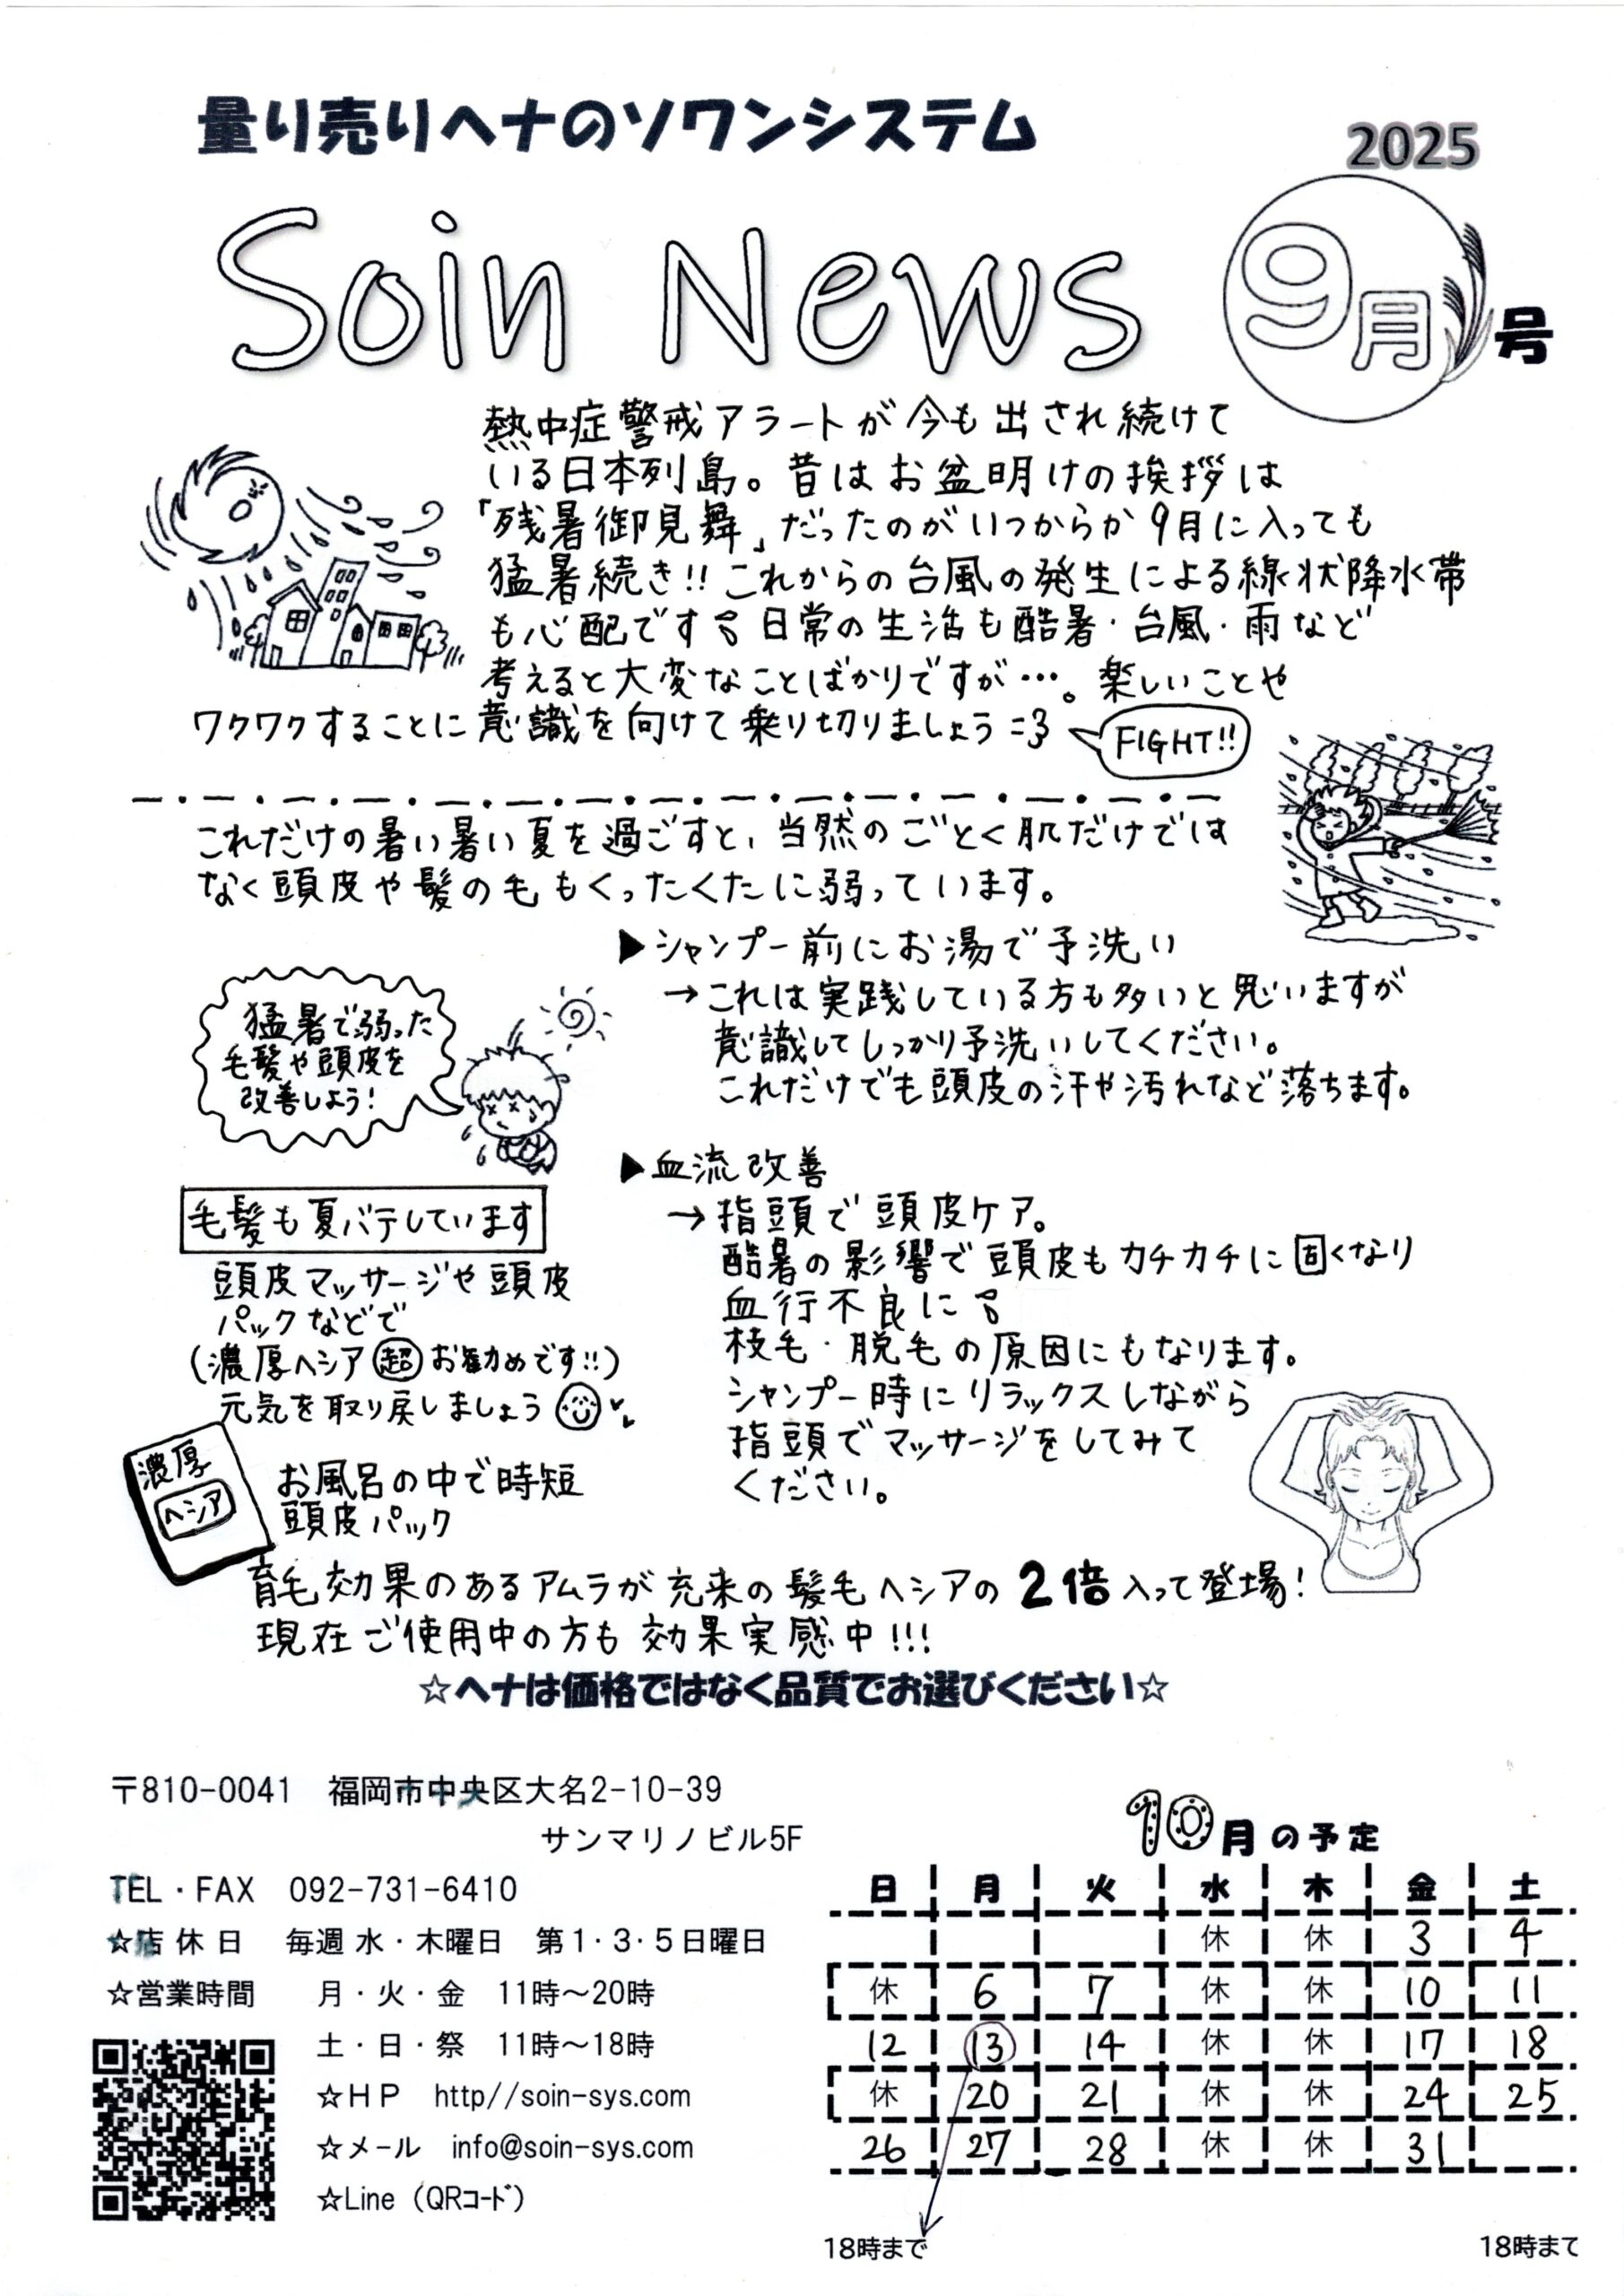 量り売りヘナのソワンシステム
2025
Soin News
9月号
熱中症警戒アラートが今も出され続けて
いる日本列島。昔はお盆明けの挨拶は
「残暑御見舞」だったのがいつからか9月に入っても
猛暑続き!! これからの台風の発生による線状降水帯
も心配です 日常の生活も酷暑・台風・雨など
考えると大変なことばかりですが…。楽しいことや
ワクワクすることに意識を向けて乗り切りましょう
FIGHT!!
これだけの暑い暑い夏を過ごすと、当然のごとく肌だけでは
なく頭皮や髪の毛もくったくたに弱っています。
▶シャンプー前にお湯で予洗い
→これは実践している方も多いと思いますが
意識してしっかり予洗いしてください。
これだけでも頭皮の汗や汚れなど落ちます。
猛暑で弱った
毛髪や頭皮を
改善しよう!
▶血流改善
→指頭で頭皮ケア。
酷暑の影響で頭皮もカチカチに固くなり
血行不良に
枝毛・脱毛の原因にもなります。
シャンプー時にリラックスしながら
指頭でマッサージをしてみて
ください。
毛髪も夏バテしています
頭皮マッサージや頭皮
パックなどで
(濃厚ヘシア超お勧めです!!)
元気を取り戻しましょう
濃厚
ヘシア
お風呂の中で時短
頭皮パック
育毛効果のあるアムラが充来の髪毛ヘシアの2倍入って登場!
現在ご使用中の方も効果実感中!!!
☆ヘナは価格ではなく品質でお選びください☆
〒810-0041 福岡市中央区大名2-10-39
サンマリノビル5F
TEL・FAX 092-731-6410
☆店休日 毎週 水・木曜日 第1・3・5日曜日
☆営業時間 月・火・金 11時～20時
土・日・祭 11時～18時
☆HP http//soin-sys.com
☆メール info@soin-sys.com
☆Line（QRコード）
10月の予定
日 月 火 水 木 金 土
休 休 3 4
休 6 7 休 休 10 11
12 13 14 休 休 17 18
休 20 21 休 休 24 25
26 27 28 休 休 31
18時まで
18時まで